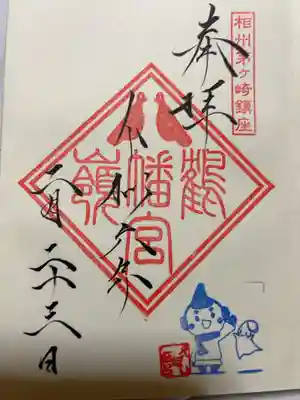 相州茅ヶ崎鎮座
奉拝
鶴嶺
八幡宮
令和六年
六月二十三日